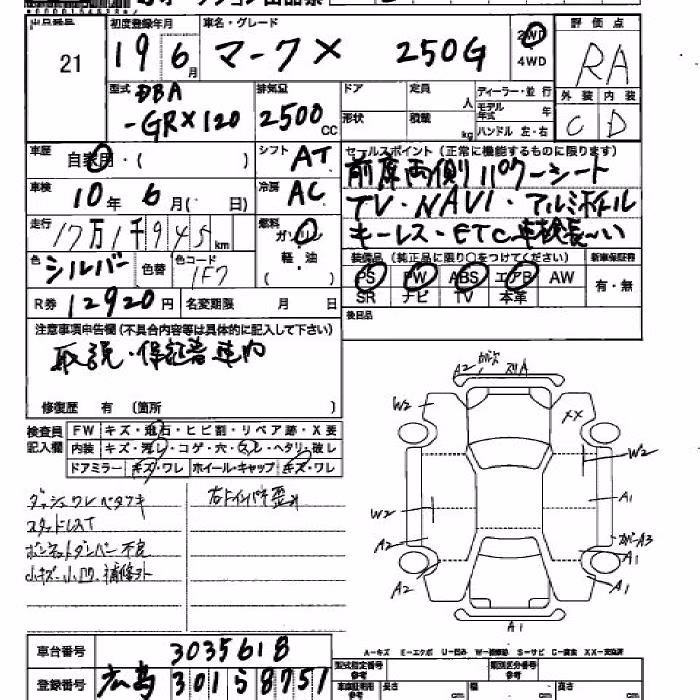 出品番号 初度登録年月 車名・グレード 評価点
21 19 6月 マークX 250G 2WD 4WD RA
型式 DBA 排気量 ドア 定員 人 ディーラー・並行 外装 内装
-GRX120 2500 CC 形状 積載 kg モデル年式 年 ハンドル 左・右 C D
車歴 自家用・( ) シフト AT セールスポイント (正常に機能するものに限ります)
前席両側パワーシート
車検 10年 6月( 日) 冷房 AC TV・NAVI・アルミホイル
走行 17万1千945km 燃料 ガソリン 軽・油 ( ) キーレス・ETC 車検長〜い
色 シルバー 色替 色コード 1F7 装備品 (純正品に限り○をつけてください) 新車保証書
PS PW ABS エアB AW 有・無
R券 12920円 名変期限 月 日 SR ナビ TV 本革
後日品
注意事項申告欄 (不具合内容等は具体的に記入して下さい)
取説・保証書車内
修復歴 有 (箇所 )
検査員記入欄 FW キズ・飛石・ヒビ割・リペア跡・X要
内装 キズ・汚レ・コゲ・穴・スレ・ヘタリ・破レ
ドアミラー キズ・ワレ ホイール・キャップ キズ・ワレ
ダッシュワレベタツキ
スタッドレスT
ボンネットダンパー不良
小キズ・小凹 補修外
A2 W2 XX W2 W2 A1 A3 A2 A1 A2 A1 A1
車台番号 3035618
A-キズ E-エクボ U-凹み W-補修跡 S-サビ C-腐食 XX-交換済
登録番号 広島 301 5 8757
型式指定番号 参考 類別区分番号 参考
長さ cm 幅 cm 高さ cm